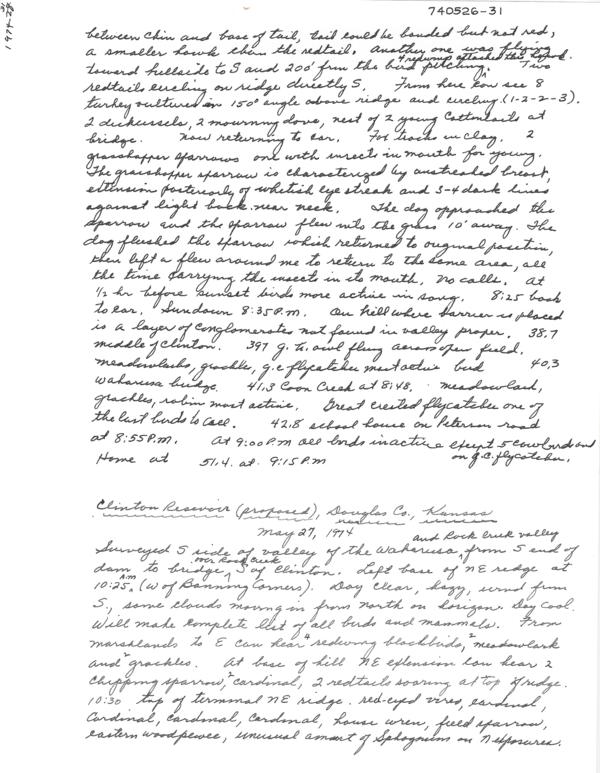 740526-31
between chin and base of tail, tail could be banded but not red,
a smaller hawk than the redtail. Another one was flying
4 redwings attacked this hawk.
toward hillside to S and 200' from the bird pitching. Two
redtails circling on ridge directly S. From here can see 8
turkey vultures in 150° angle above ridge and circling. (1-2-2-3).
2 dickcissels, 2 mourning dove, nest of 2 young Cottontails at
bridge. Now returning to car. Fox tracks in clay. 2
grasshopper sparrows one with insects in mouth for young.
The grasshopper sparrow is characterized by unstreaked breast,
extension posteriorly of whitish eye streak and 3-4 dark lines
against light back near neck. The dog approached the
sparrow and the sparrow flew into the grass 10' away. The
dog flushed the sparrow which returned to original position,
then left & flew around me to return to the same area, all
the time carrying the insects in its mouth. No calls. At
1/2 hr before sunset birds more active in song. 8:25 back
to car. Sundown 8:35 P.M. On hill where barrier is placed
is a layer of conglomerates not found in valley proper. 38.7
middle of Clinton. 39.7 g. h. owl flying across open field.
meadowlarks, grackles, g.c flycatcher most active bird 40.3
Wakarusa bridge. 41.3 Coon Creek at 8:48. meadowlark,
grackles, robin most active. Great crested flycatcher one of
the last birds to call. 42.8 school house on Peterson road
at 8:55 P.M. At 9:00 P.M all birds inactive except 5 cowbirds and
on g.c. flycatcher.
Home at 51.4. at 9:15 P.M
Clinton Reservoir (proposed), Douglas Co., Kansas
May 27, 1974
and Rock Creek valley
Surveyed S side of valley of the Wakarusa, from S end of
over Rock Creek
dam to bridge S of Clinton. Left base of NE ridge at
10:25 A.M. (W of Banning Corners). Day clear, hazy, wind from
S, some clouds moving in from north on horizon. Day cool.
Will make complete list of all birds and mammals. From
marshlands to E can hear 4 redwing blackbirds, 2 meadowlark
and 2 grackles. At base of hill NE extension can hear 2
chipping sparrow, 2 cardinal, 2 redtails soaring at top of ridge.
10:30 top of terminal NE ridge. red-eyed vireo, cardinal,
Cardinal, cardinal, Cardinal, house wren, field sparrow,
eastern wood pewee, unusual amount of Sphagnums on N exposures.